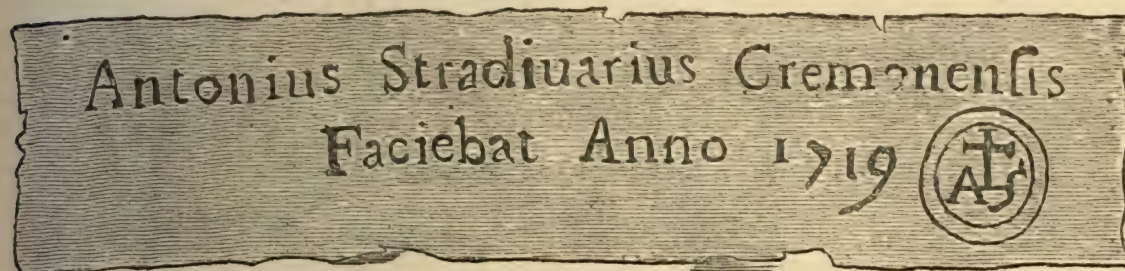 Antonius Stradiuarius Cremonenſis
Faciebat Anno 1719
AS